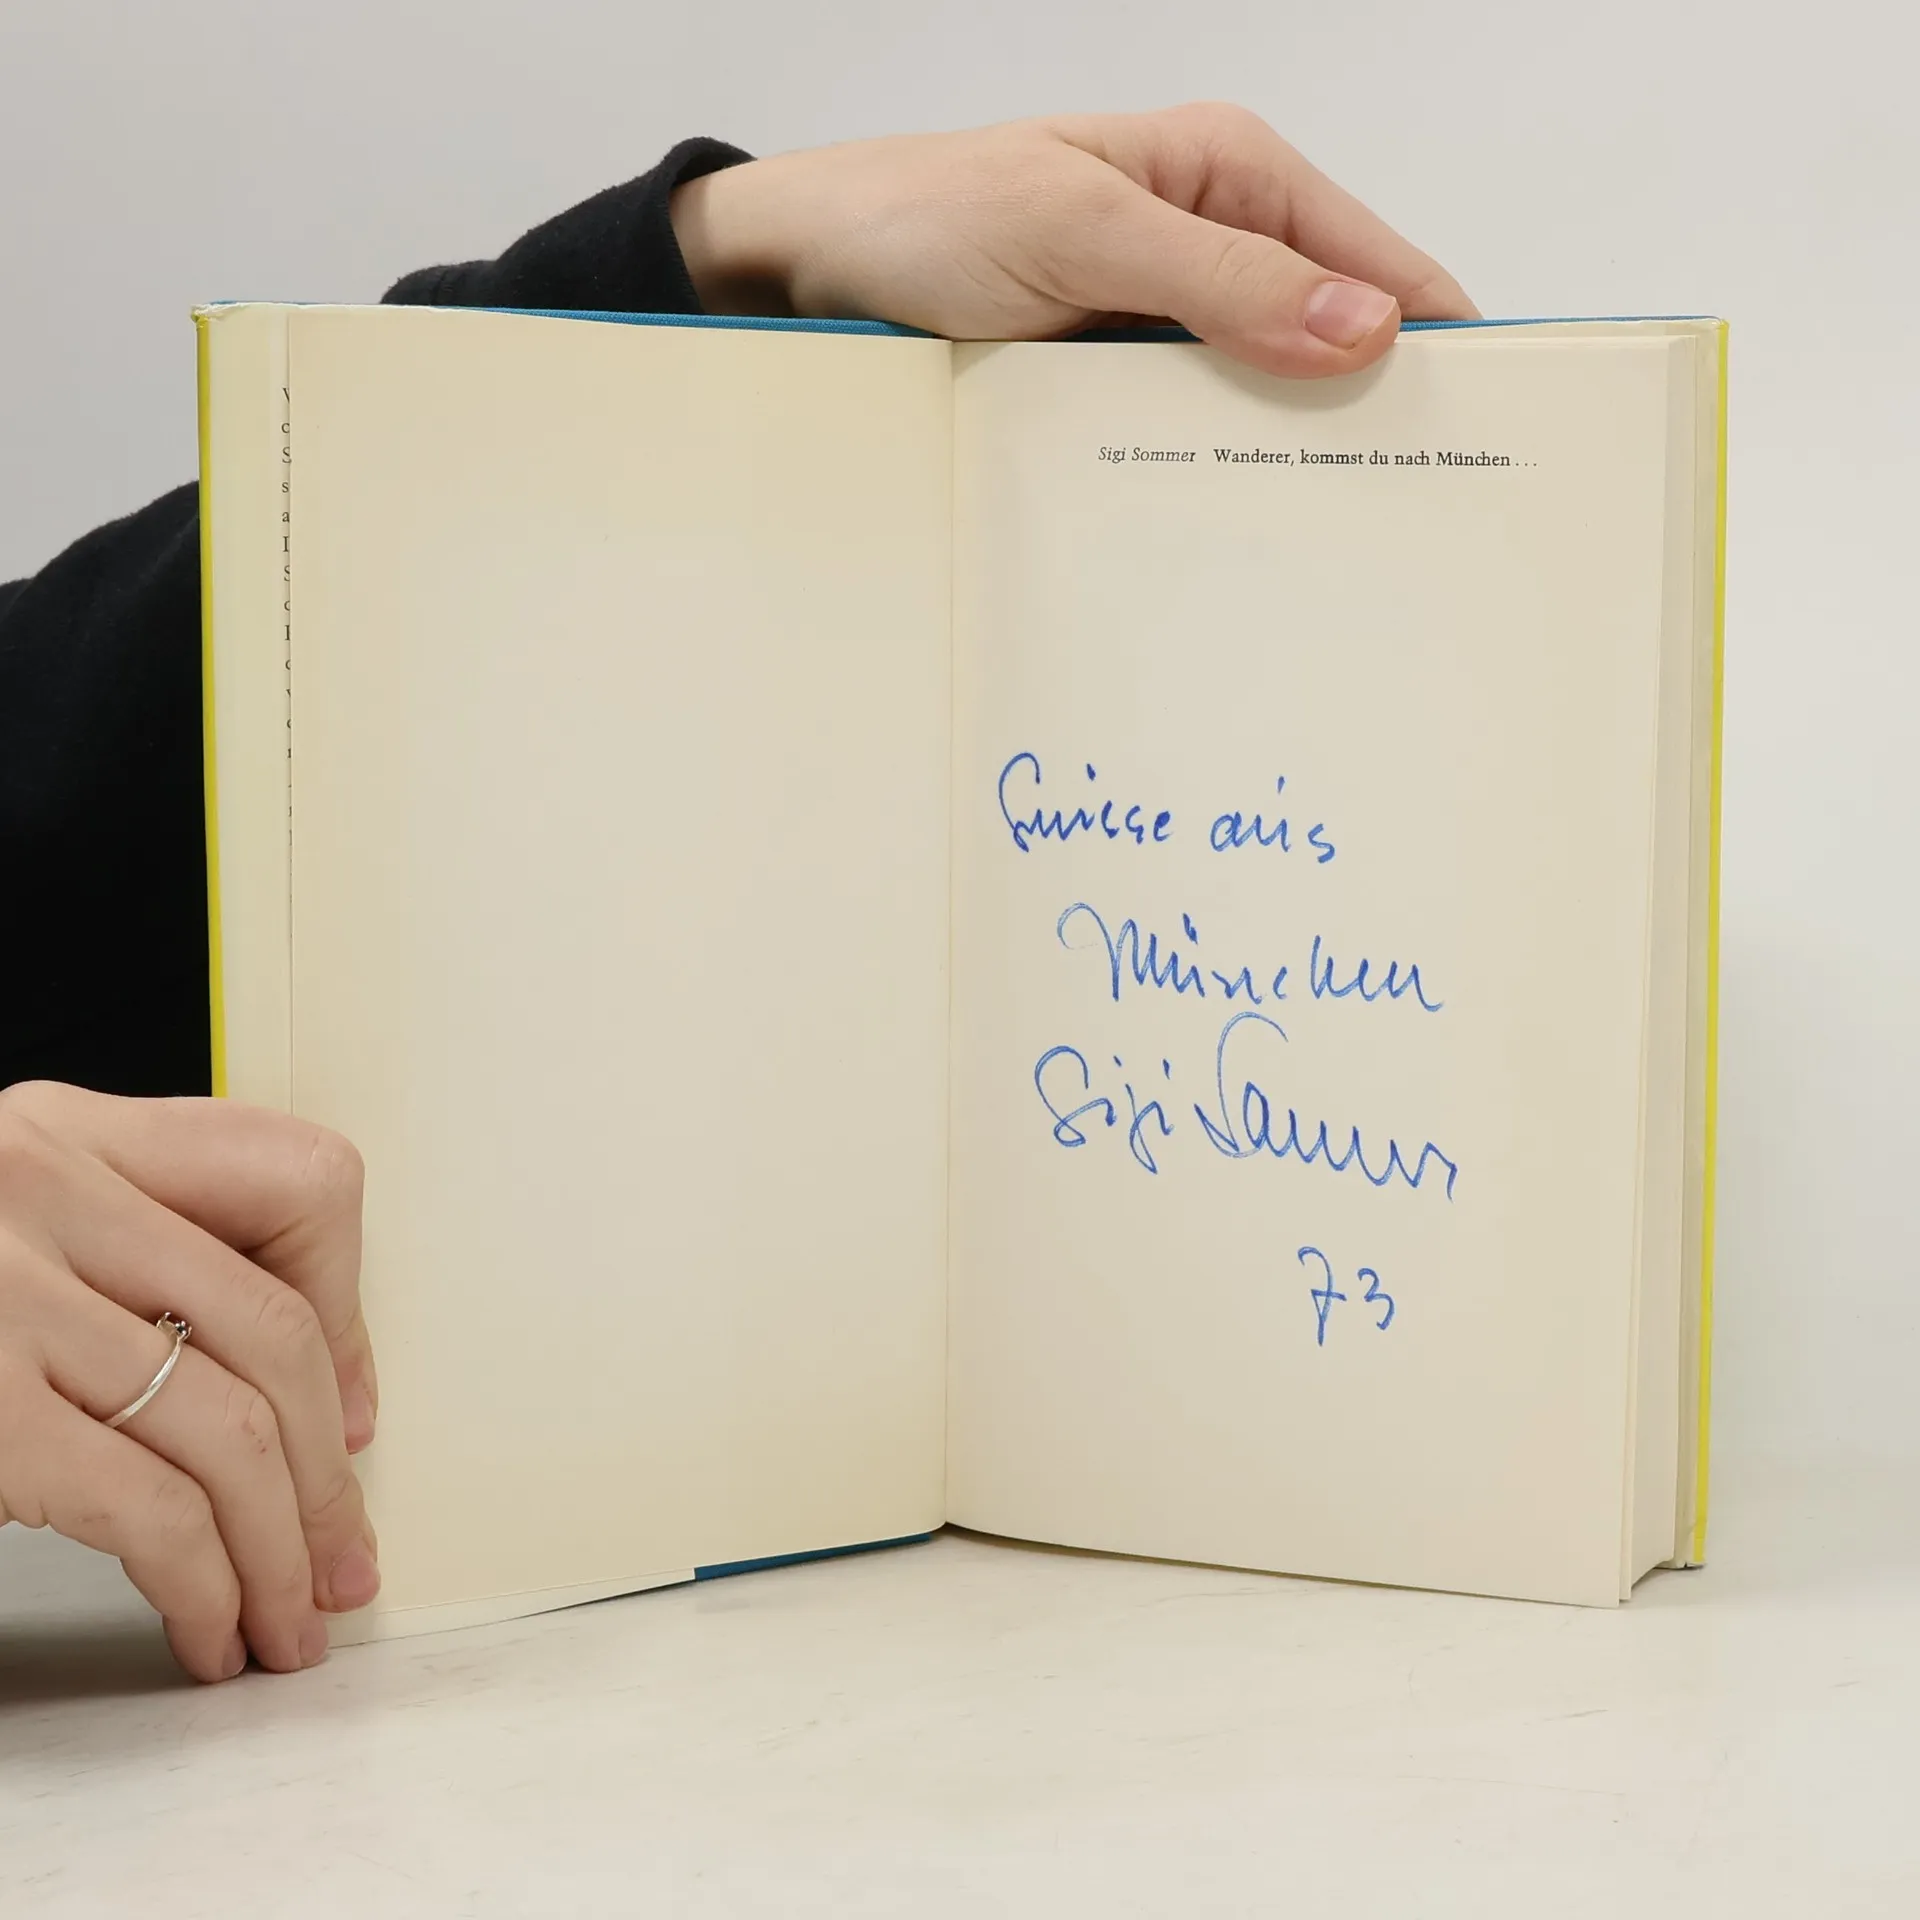 Sigi Sommer Wanderer, kommst du nach München . . .
Grüsse aus
München
Sigi Sommer
73